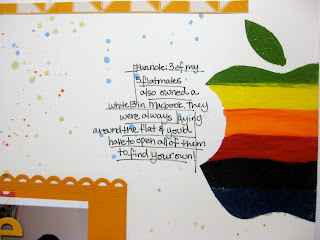 Fun note: 3 of my
5 flatmates
also owned a
white 13 in Macbook. They
were always laying
around the flat & you'd
have to open all of them
to find your own!
e